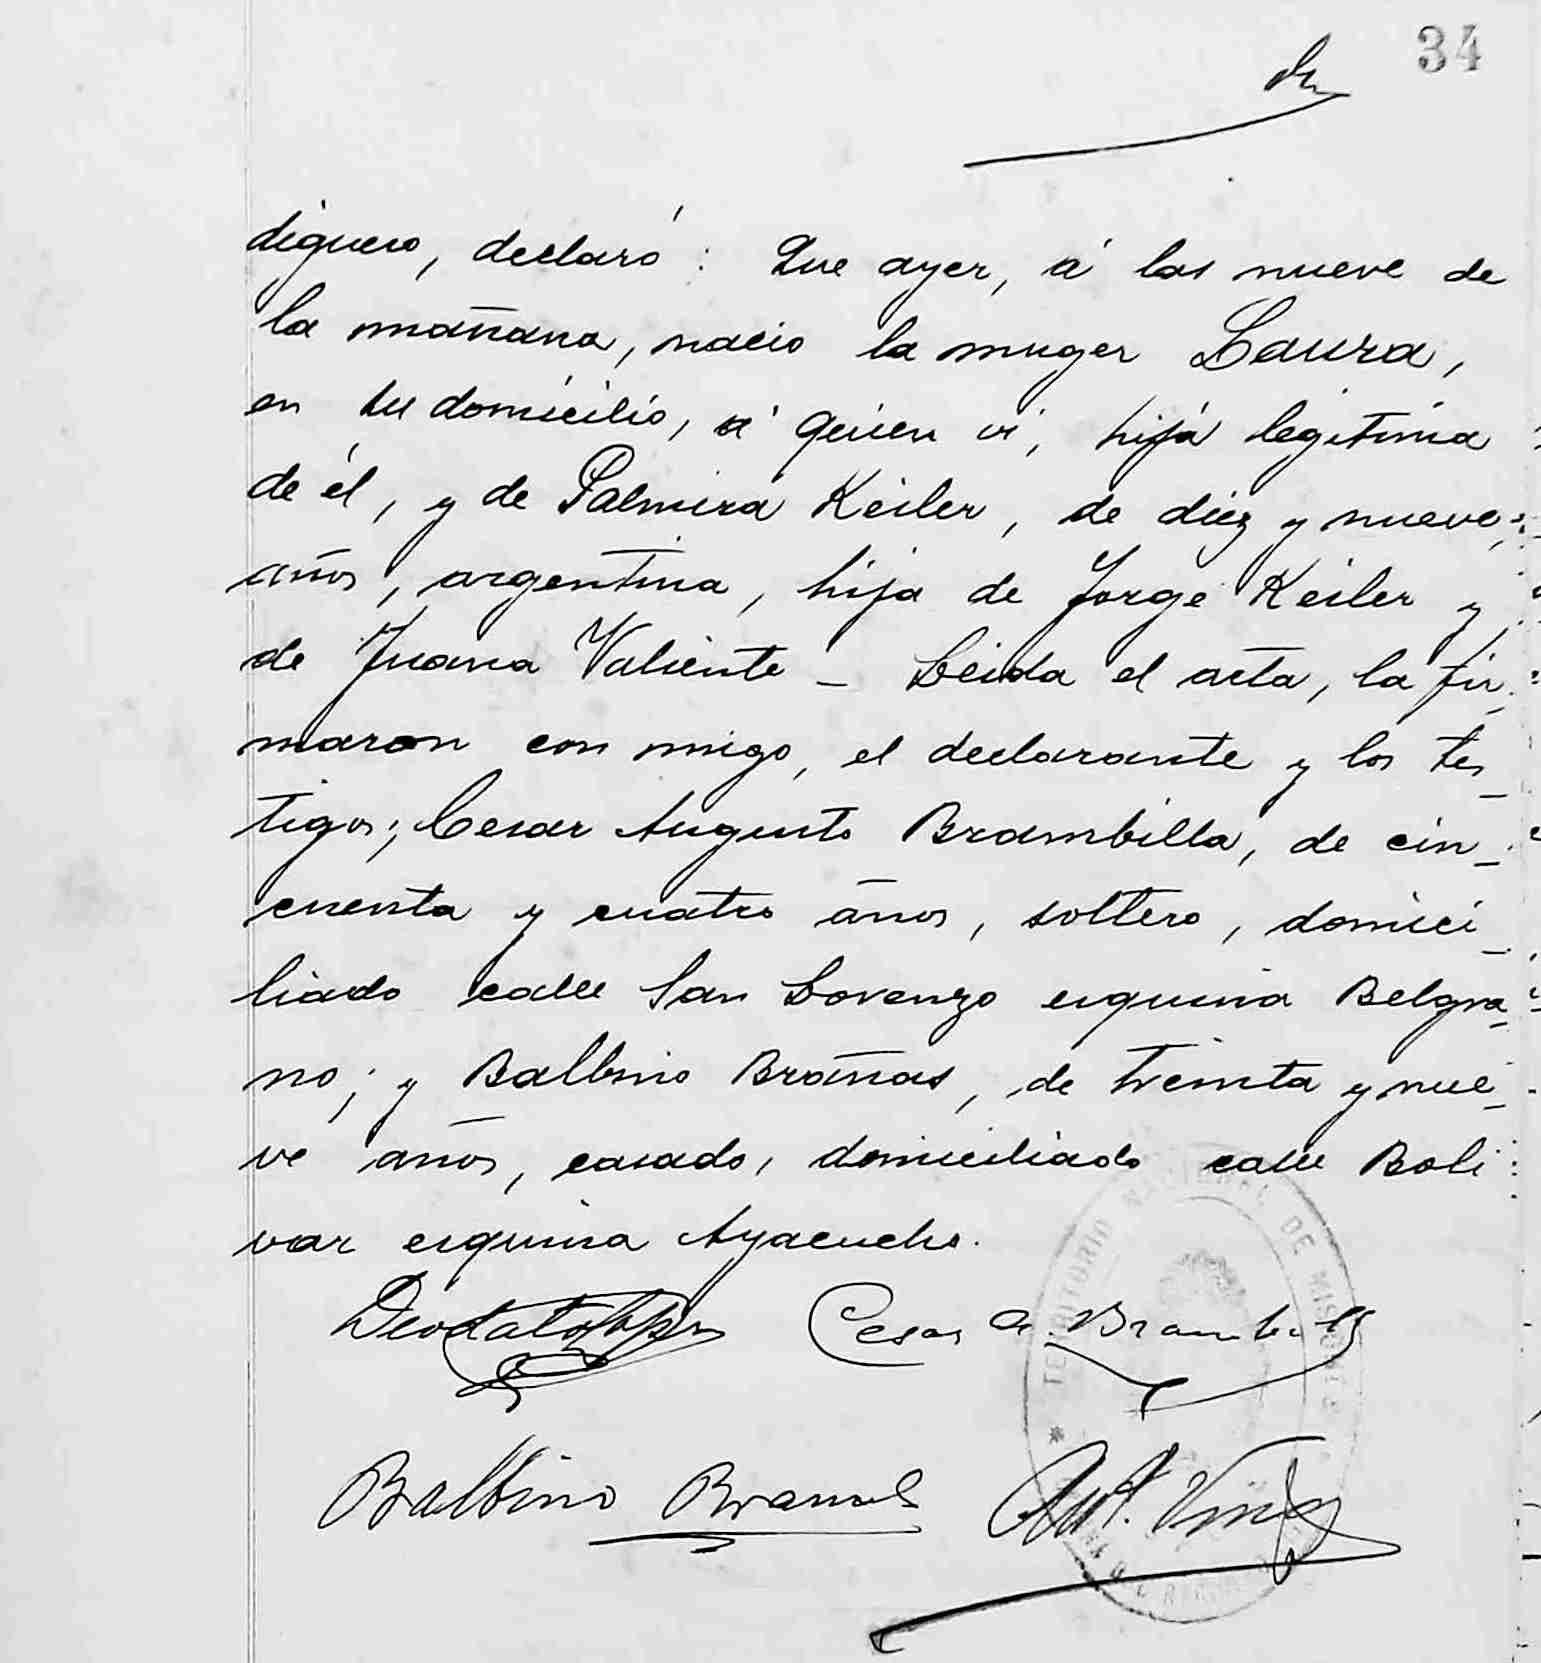 34
diguero, declaró: Que ayer, á las nueve de
la mañana, nacio la muger Laura,
en su domicilio, á quien vi, hija legitima
de él, y de Palmira Keiler, de diez y nueve
años, argentina, hija de Jorge Keiler y
de Juana Valiente — Leida el acta, la fir_
maron con migo, el declarante y los tes_
tigos; Cesar Augusto Brambilla, de cin_
cuenta y cuatro años, soltero, domici_
liado calle San Lorenzo esquina Belgra_
no; y Balbino Brañas, de treinta y nue_
ve años, casado, domiciliado calle Boli
var esquina Ayacucho.
Deodato Cesar A. Brambilla
Balbino Brañas
TERRITORIO NACIONAL DE MISIONES